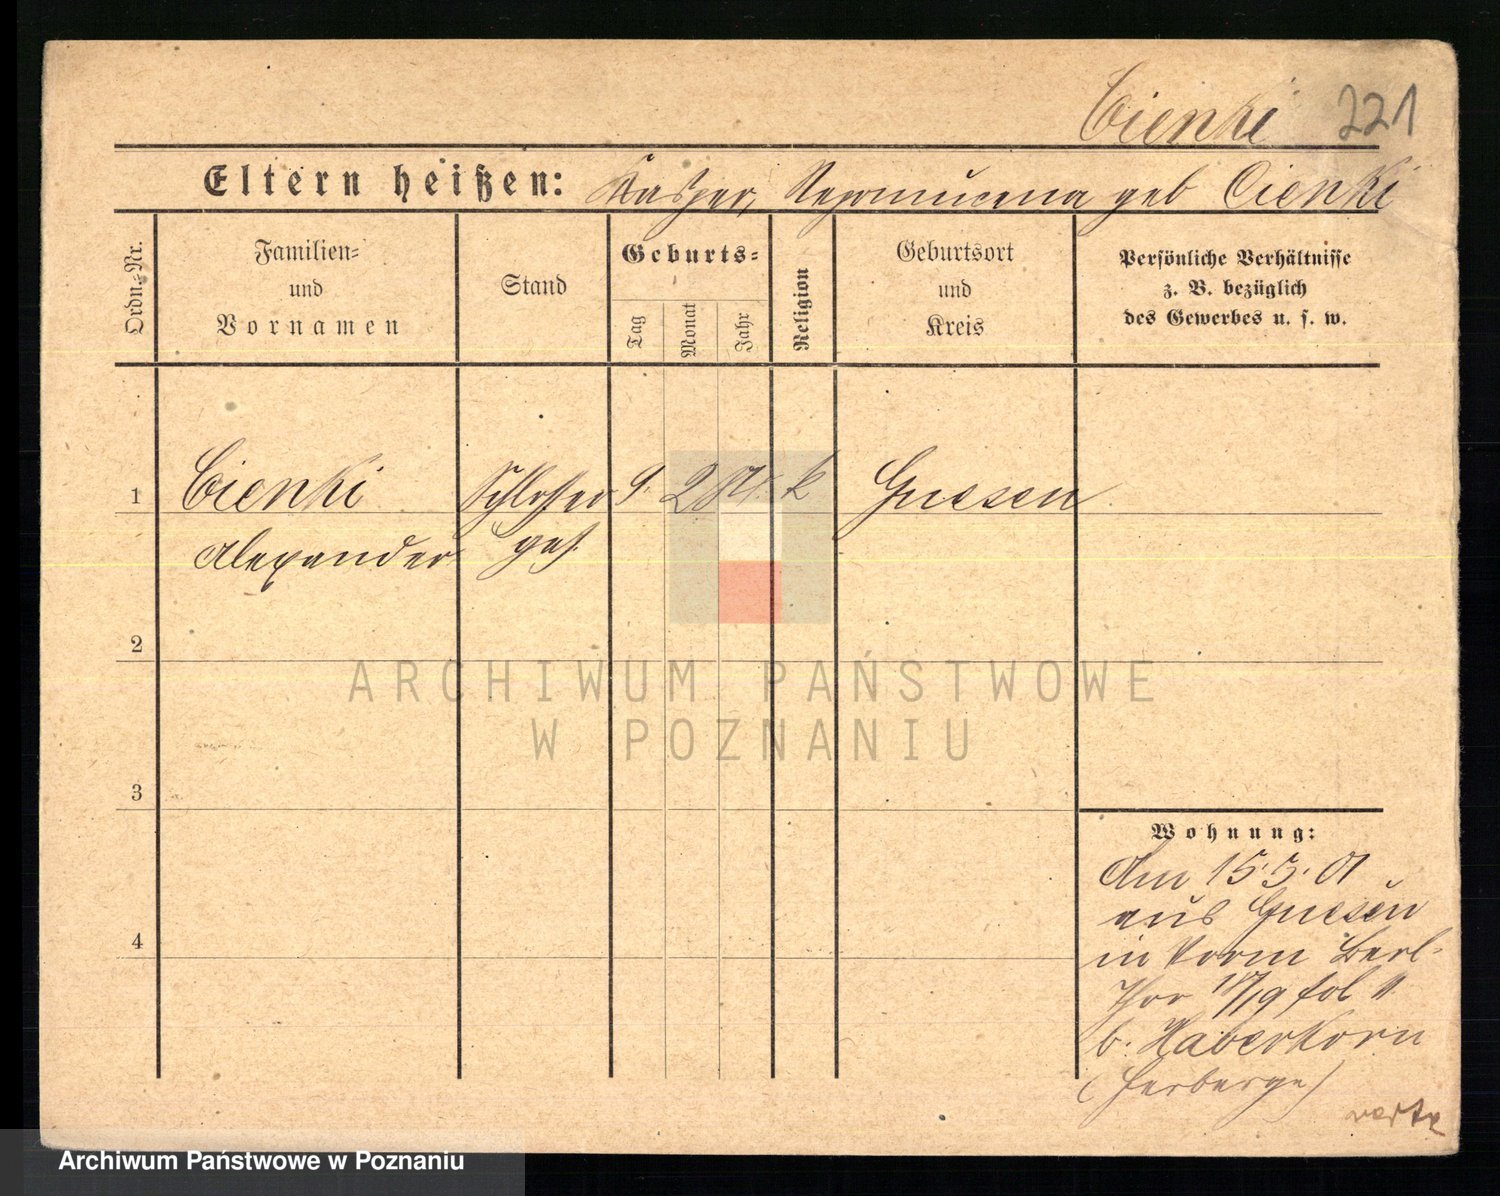 Cienki 221
Eltern heißen: Kasper, Nepomucena geb Cienki
Ordn.-Nr.
Familien-
und
Vornamen
Stand
Geburts-
Tag
Monat
Jahr
Religion
Geburtsort
und
Kreis
Persönliche Verhältnisse
z. B. bezüglich
des Gewerbes u. s. w.
1 Cienki Schlosser 9. 2 k Gnesen
Alexander ges.
2
3
4
Wohnung:
Am 15.5.01
aus Gnesen
in Vorm Berl-
Thor 18/19 fol 11
b. Haberkorn
(Herberge)
verte
ARCHIWUM PAŃSTWOWE
W POZNANIU
Archiwum Państwowe w Poznaniu